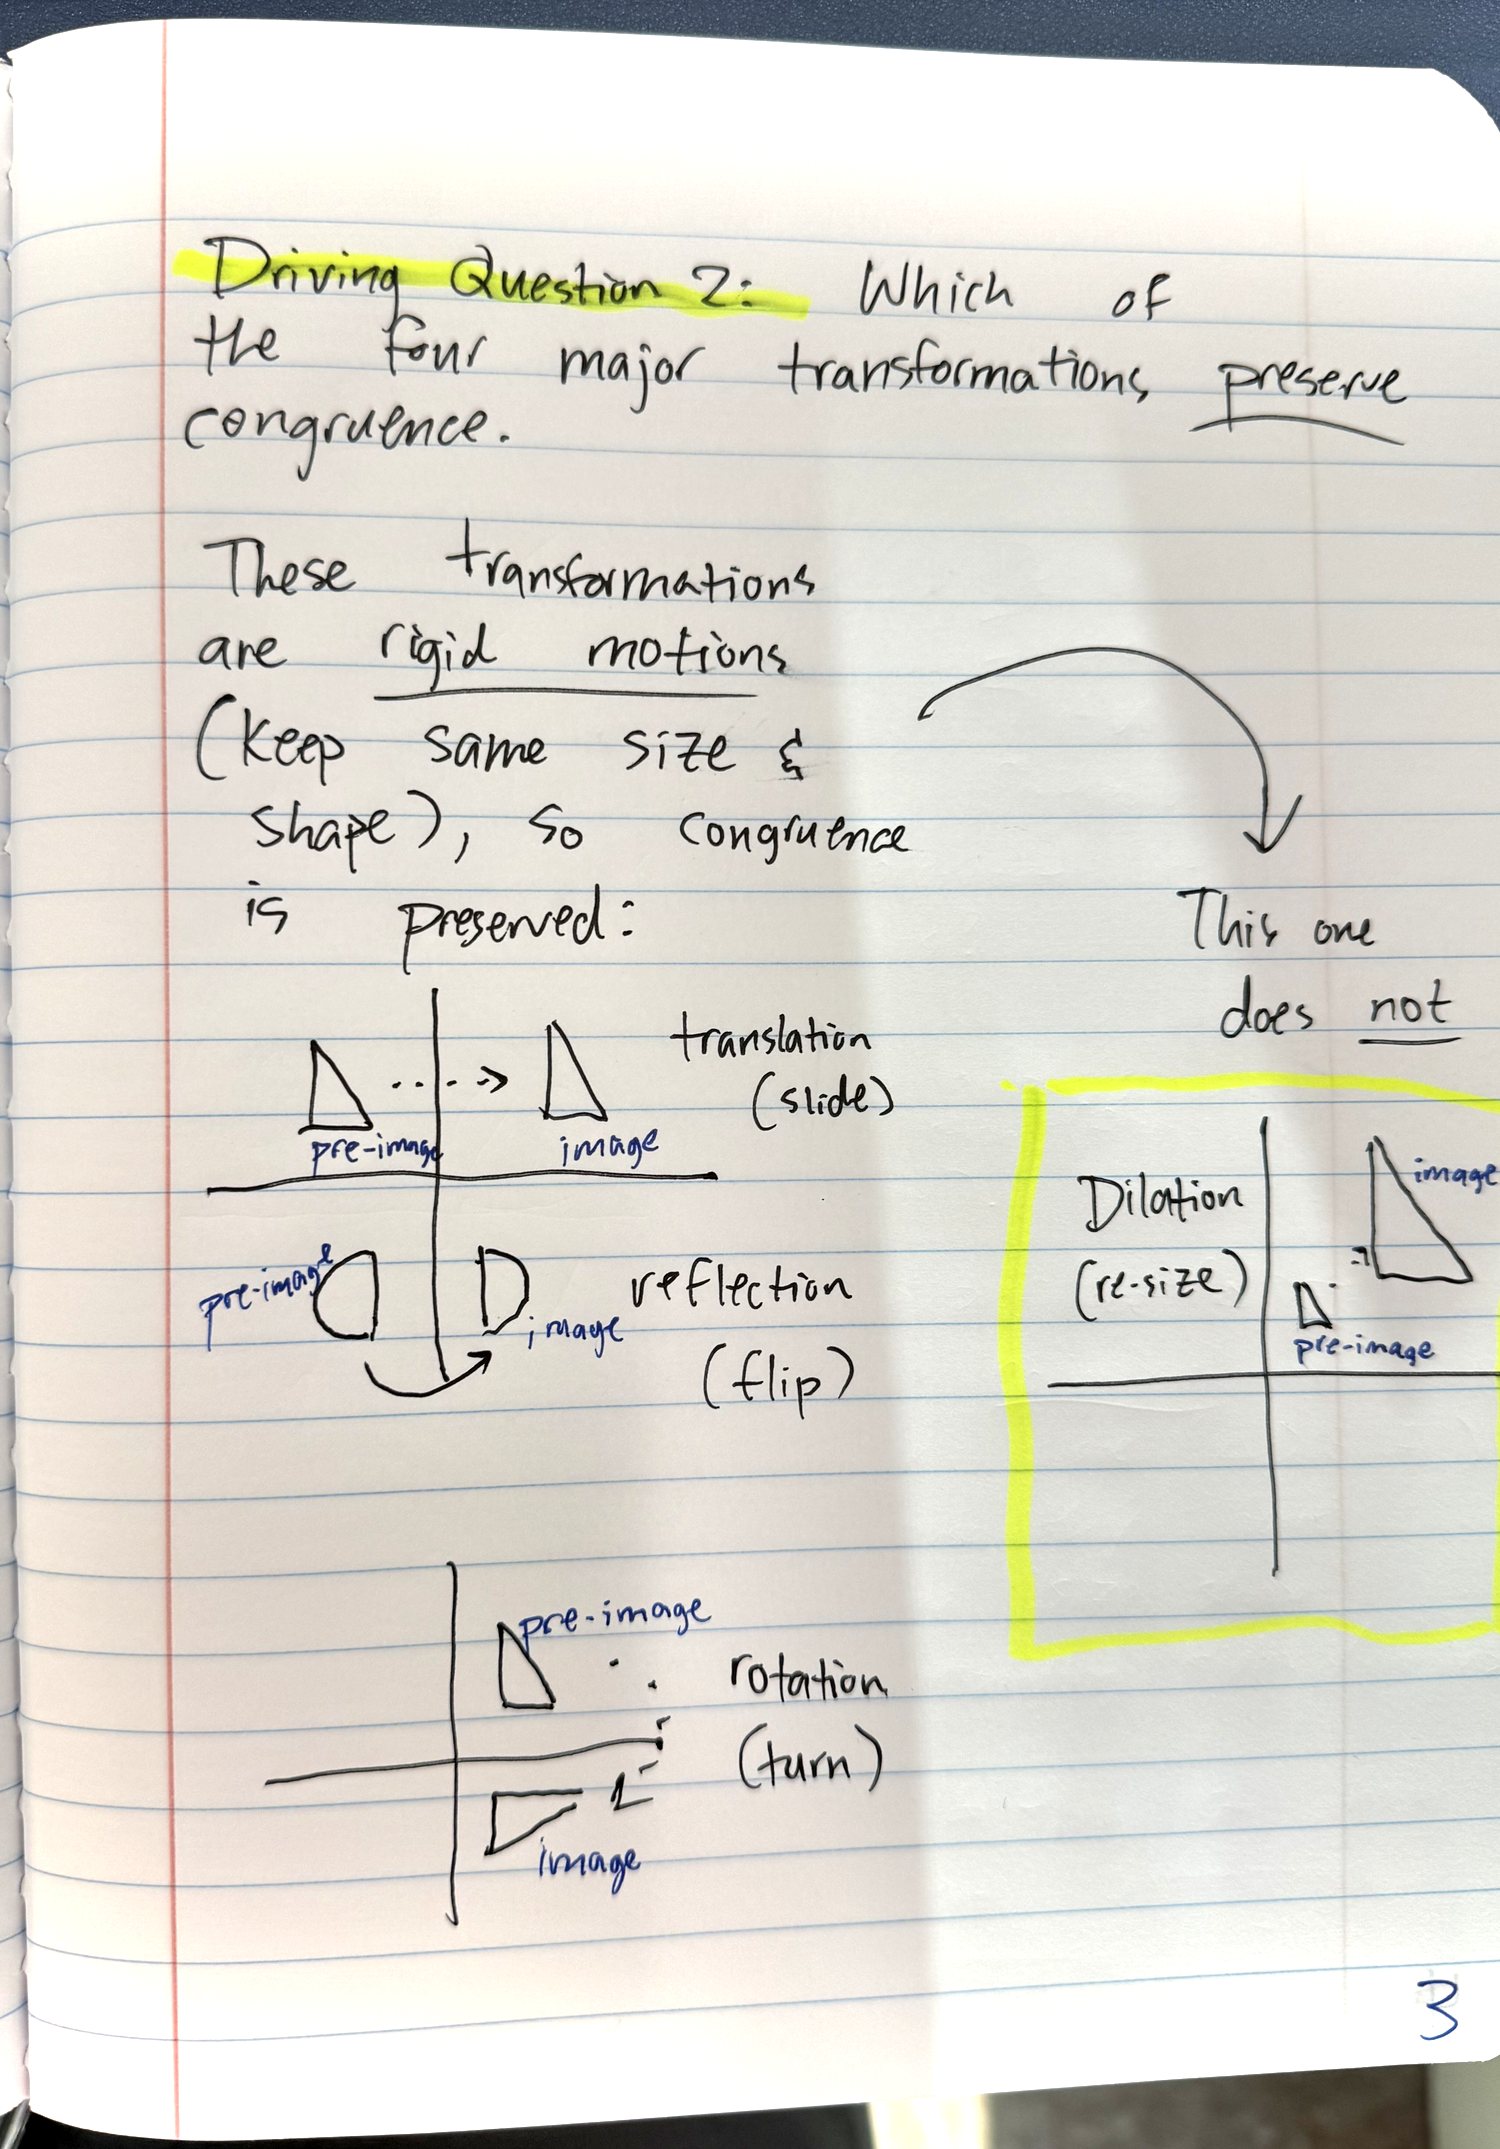 Driving Question 2: Which of
the four major transformations preserve
congruence.
These transformations
are rigid motions
(Keep same size &
shape), so congruence
is preserved:
This one
does not
translation
(slide)
pre-image
image
pre-image
image
reflection
(flip)
Dilation
(re-size)
image
pre-image
pre-image
rotation
(turn)
image
3